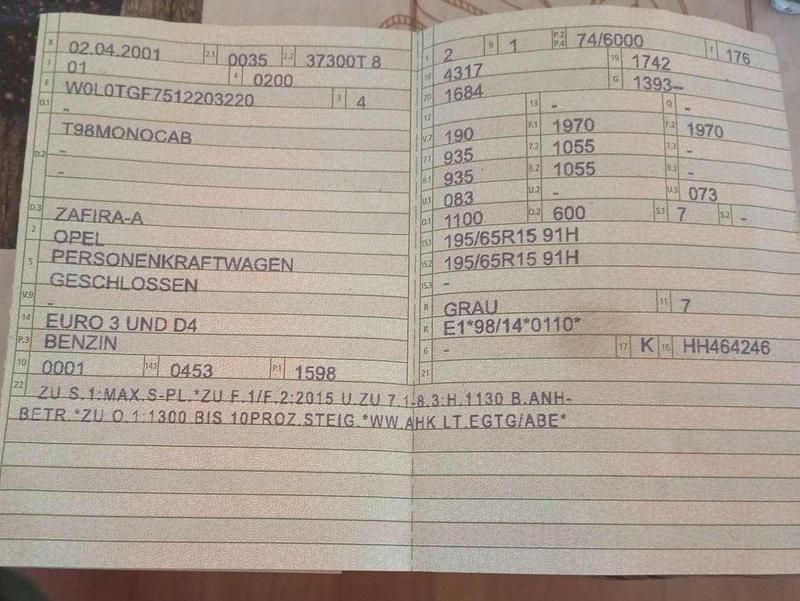 B 02.04.2001 2.1 0035 2.2 37300T 8
J 01 4 0200
E W0L0TGF7512203220 3 4
D.1 -
D.2 T98MONOCAB
-
-
D.3 ZAFIRA-A
2 OPEL
5 PERSONENKRAFTWAGEN
GESCHLOSSEN
V.9 -
14 EURO 3 UND D4
P.3 BENZIN
10 0001 14.1 0453 P.1 1598
L 2 9 1 P.2 P.4 74/6000 T 176
18 4317 19 1742
20 1684 G 1393–
12 13 - Q -
V.7 190 F.1 1970 F.2 1970
7.1 935 7.2 1055 7.3 -
8.1 935 8.2 1055 8.3 -
U.1 083 U.2 - U.3 073
O.1 1100 O.2 600 S.1 7 S.2 -
15.1 195/65R15 91H
15.2 195/65R15 91H
15.3 -
R GRAU 11 7
K E1*98/14*0110*
6 - 17 K 16 HH464246
21
22 ZU S.1:MAX.S-PL.*ZU F.1/F.2:2015 U.ZU 7.1-8.3:H.1130 B.ANH-
BETR.*ZU O.1:1300 BIS 10PROZ.STEIG.*WW.AHK LT.EGTG/ABE*